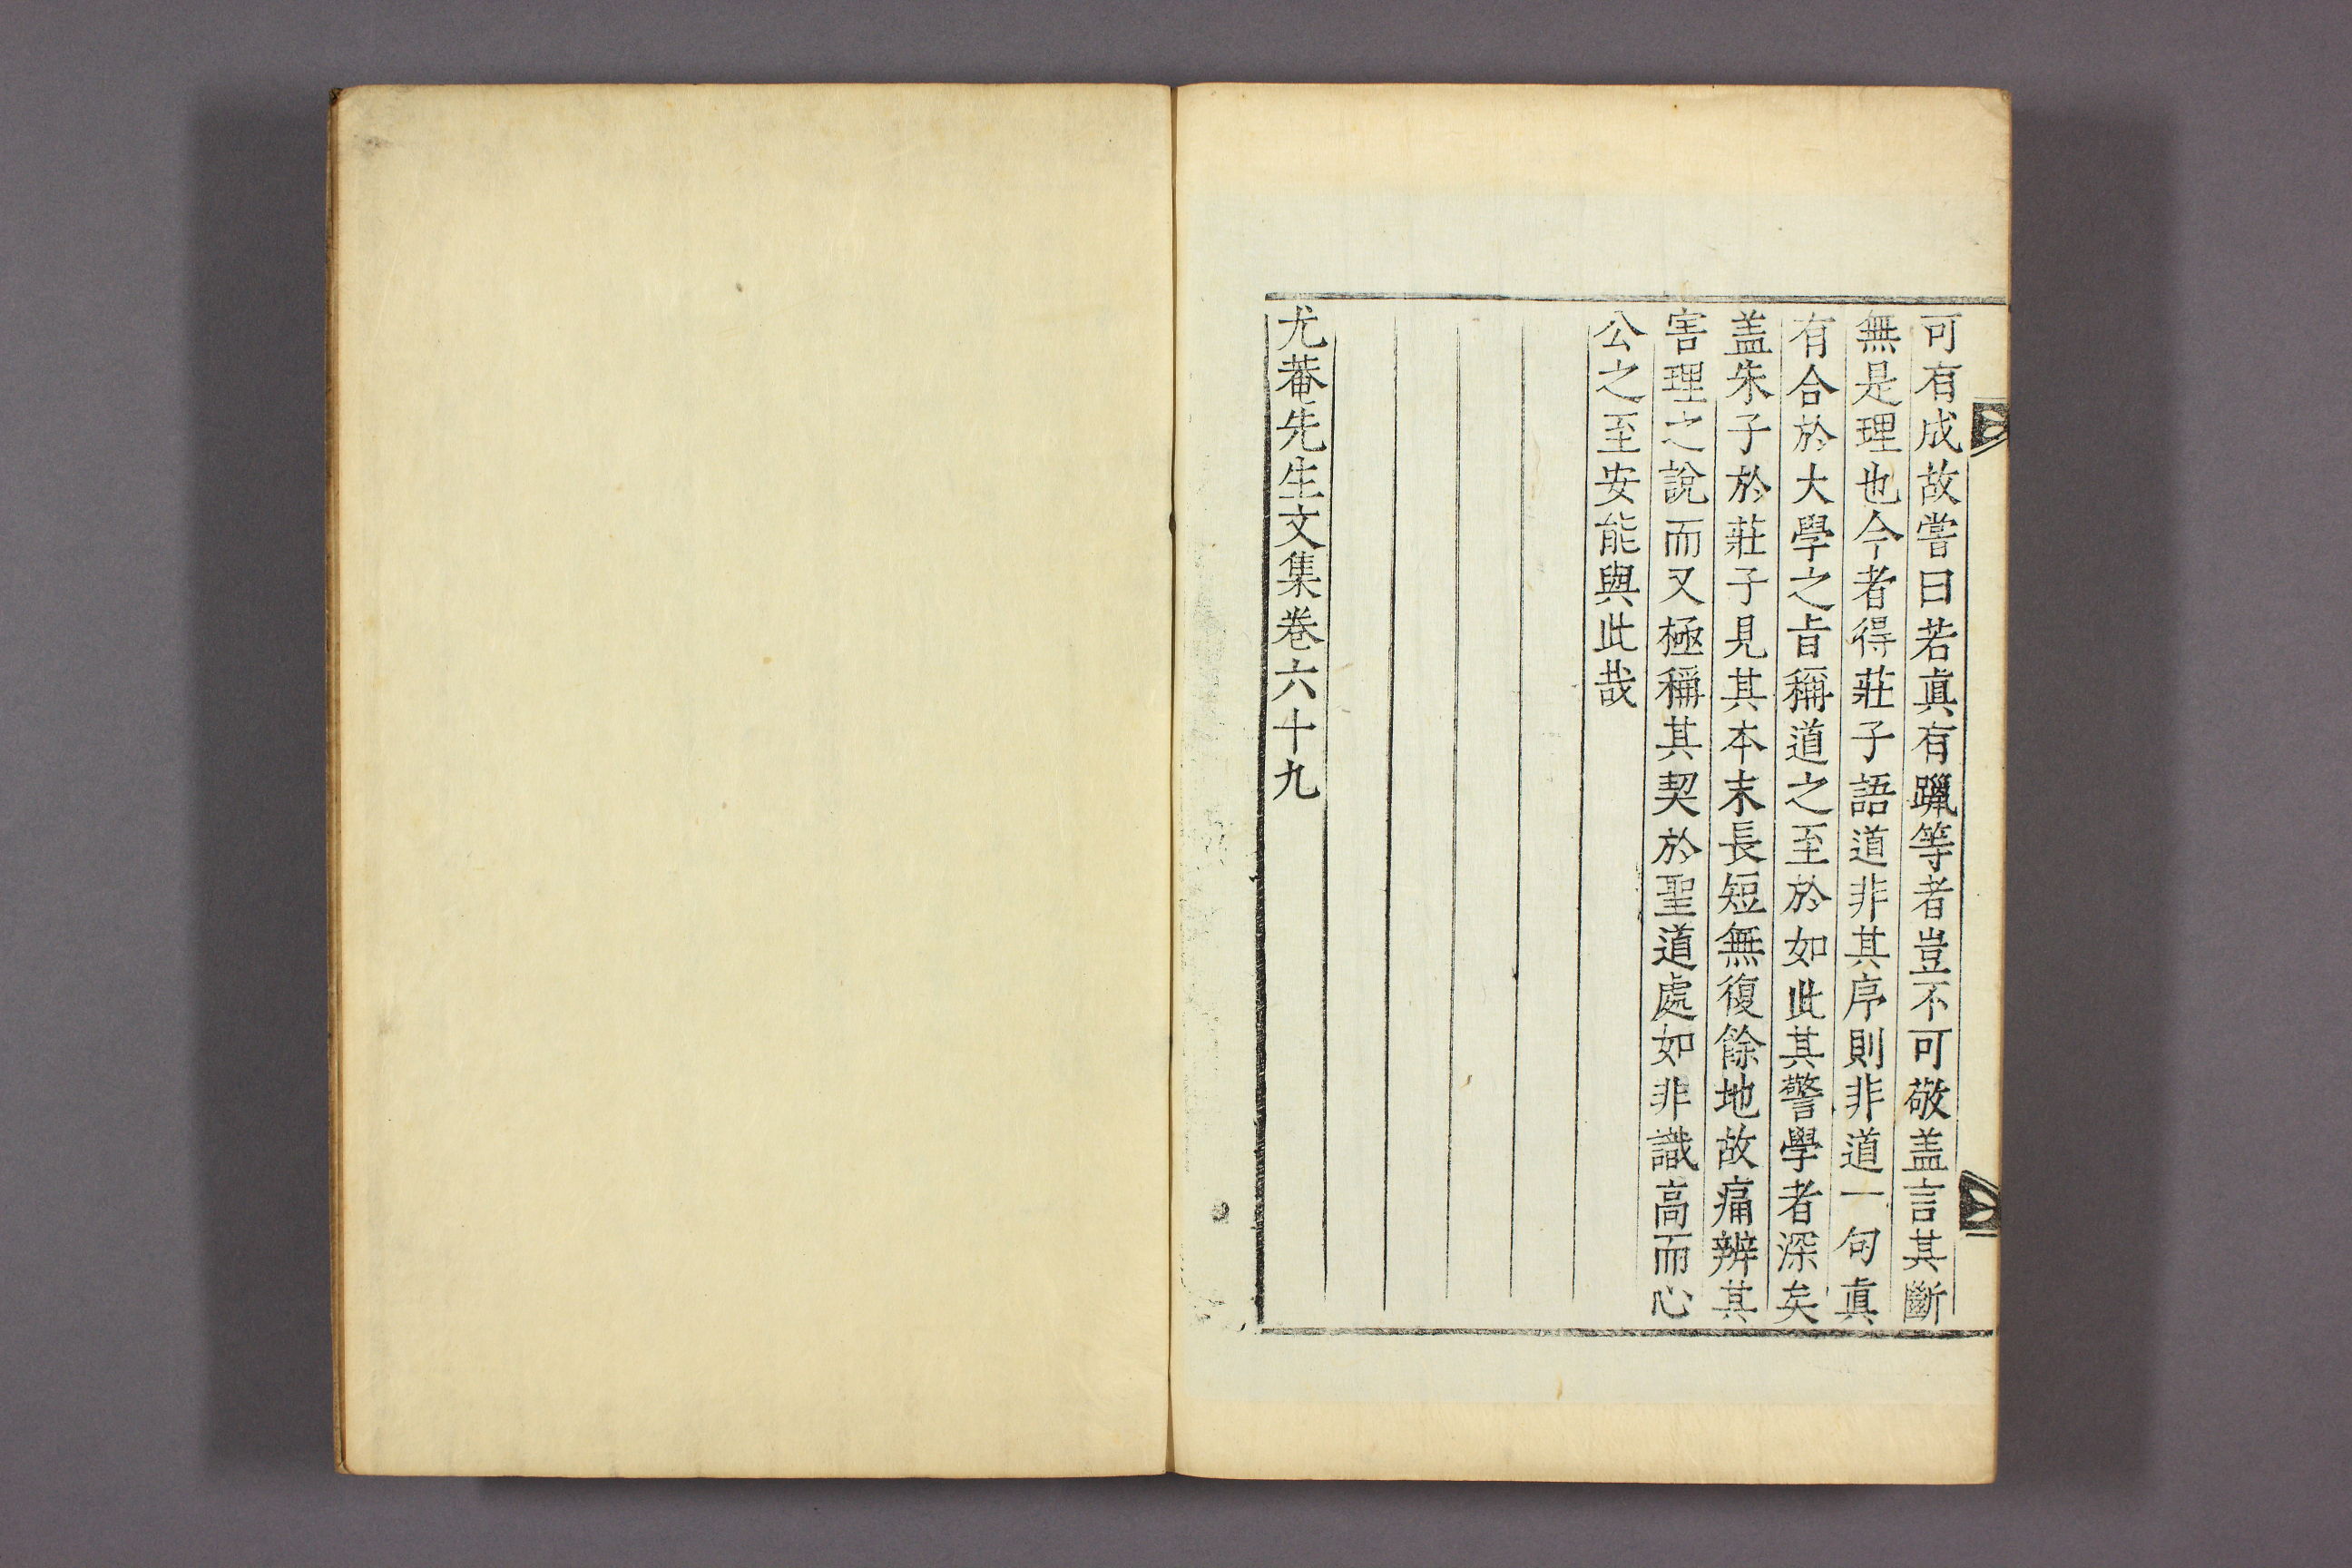 可有成故嘗曰若眞有躐等者豈不可敬盖言其斷
無是理也今者得莊子語道非其序則非道一句眞
有合於大學之㫖稱道之至於如此其警學者深矣
盖朱子於莊子見其本末長短無復餘地故痛辨其
害理之說而又極稱其契於聖道處如非識高而心
公之至安能與此哉
尤菴先生文集卷六十九